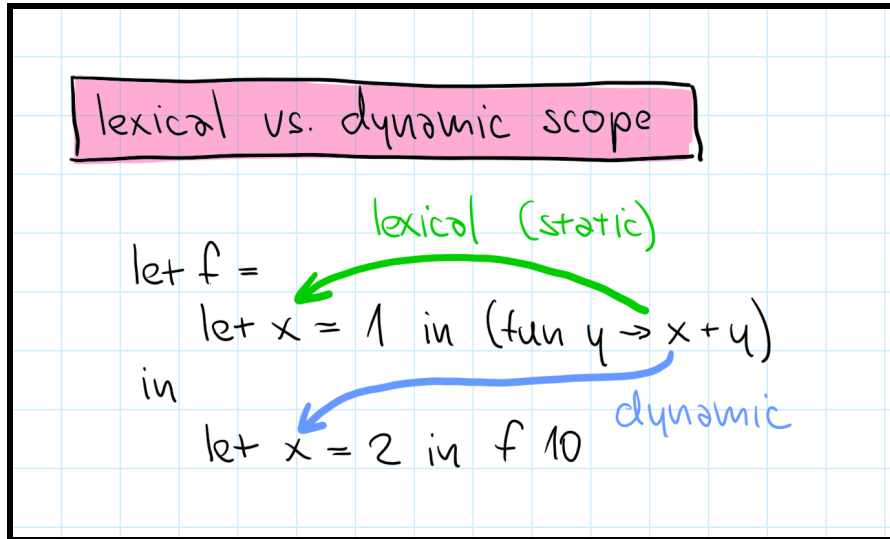 lexical vs. dynamic scope
lexical (static)
let f =
let x = 1 in (fun y → x + y)
in
dynamic
let x = 2 in f 10